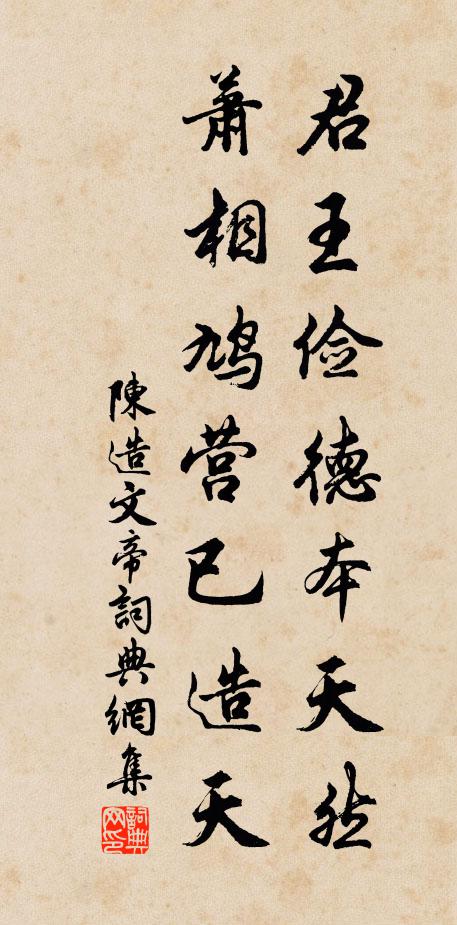 君王俭德本天然
萧相鸠营已造天
陳造文帝詞典網集
詞典网印